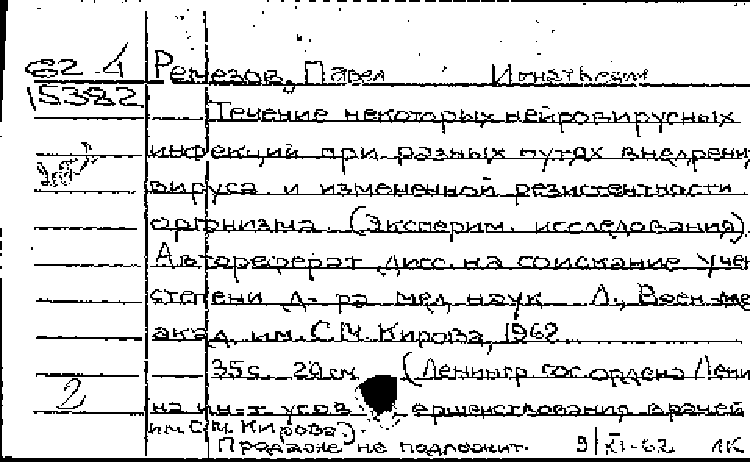 62 4 Ремезов, Павел Игнатьевич
15382
Течение некоторых нейровирусных
инфекций при разных путях внедрени
вируса и измененной резистентности
организма. (Эксперим. исследования).
Автореферат дисс. на соискание учен
степени д-ра мед. наук. Л., Воен-ме
акад. им. С. М. Кирова, 1962
35 с. 20 см (Ленингр. гос. ордена Лени
2
на ин-т усов ершенствования врачей
им. С. М. Кирова).
Продаже не подлежит. 9/XI-62 ЛК